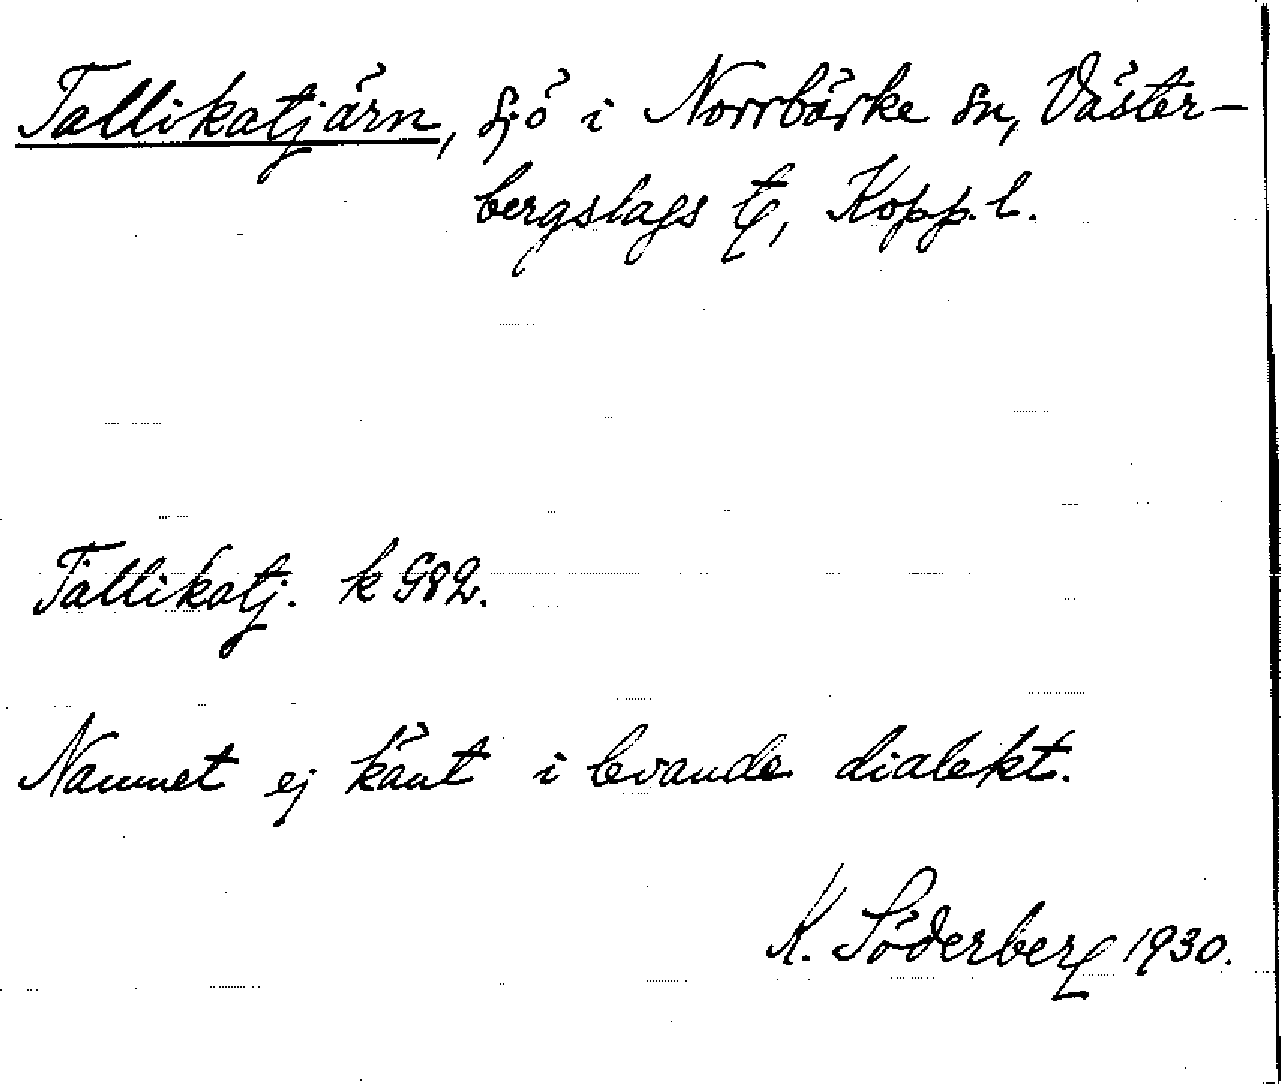 Tallikatjärn, sjö i Norrbärke sn, Väster-
bergslags tg, Kopp. l.
Tallikatj. k 982.
Namnet ej känt i levande dialekt.
K. Söderberg 1930.